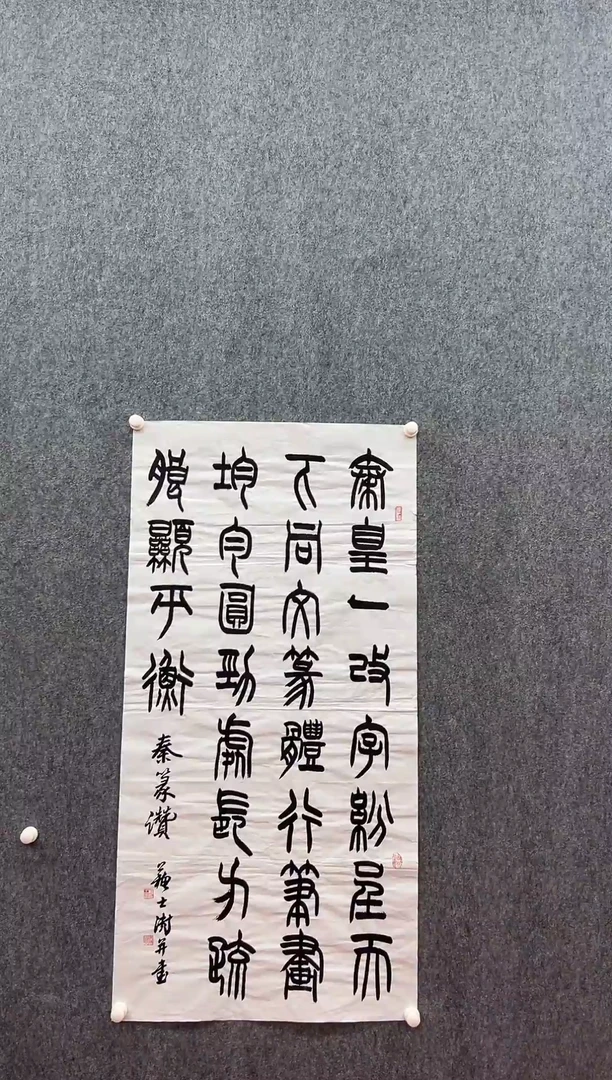 秦皇一改字紛呈天
下同文篆體行筆畫
均勻圓勁處長方疏
朖顯平衡
秦篆讚
蘇士澍并書